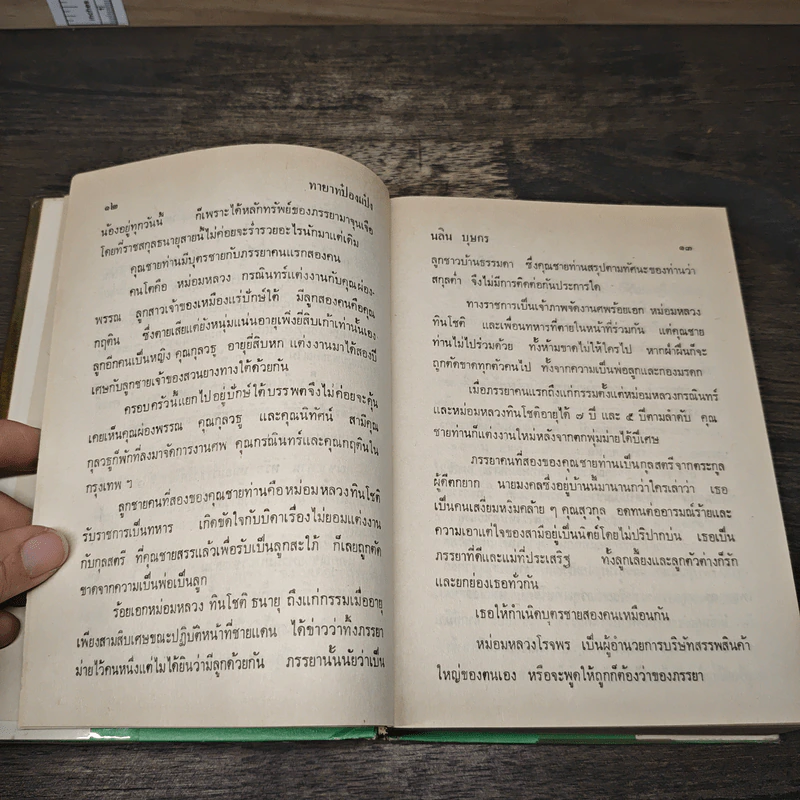 inches
๑๒
ทายาทป่องแป้ง
น้องอยู่ทุกวันนี้ ก็เพราะได้หลักทรัพย์ของภรรยามาจุนเจือ
โดยที่ราชสกุลธนายุสายนี้ไม่ค่อยจะร่ำรวยอะไรนักมาแต่เดิม
คุณชายท่านมีบุตรชายกับภรรยาคนแรกสองคน
คนโตคือ หม่อมหลวง กรณินทร์แต่งงานกับคุณผ่อง-
พรรณ ลูกสาวเจ้าของเหมืองแร่ปักษ์ใต้ มีลูกสองคนคือคุณ
กฤติน ซึ่งตายเสียแต่ยังหนุ่มแน่นอายุเพิ่งยี่สิบเก้าเท่านั้นเอง
ลูกอีกคนเป็นหญิง คุณกุลวธู อายุยี่สิบหก แต่งงานมาได้สองปี
เศษกับลูกชายเจ้าของสวนยางทางใต้ด้วยกัน
ครอบครัวนี้แยกไปอยู่ปักษ์ใต้บรรพตจึงไม่ค่อยจะคุ้น
เคยเห็นคุณผ่องพรรณ คุณกุลวธู และคุณนิทัศน์ สามีคุณ
กุลวธูก็พักที่ลงมาจัดการงานศพ คุณกรณินทร์และคุณกฤตินใน
กรุงเทพ ฯ
ลูกชายคนที่สองของคุณชายท่านคือหม่อมหลวงทินโชติ
รับราชการเป็นทหาร เกิดขัดใจกับบิดาเรื่องไม่ยอมแต่งงาน
กับกุลสตรี ที่คุณชายสรรแล้วเพื่อรับเป็นลูกสะใภ้ ก็เลยถูกตัด
ขาดจากความเป็นพ่อเป็นลูก
ร้อยเอกหม่อมหลวง ทินโชติ ธนายุ ถึงแก่กรรมเมื่ออายุ
เพียงสามสิบเศษขณะปฏิบัติหน้าที่ชายแดน ได้ข่าวว่าทิ้งภรรยา
ม่ายไว้คนหนึ่งแต่ไม่ได้ยินว่ามีลูกด้วยกัน ภรรยานั้นนัยว่าเป็น
นลิน บุษกร
๑๓
ลูกชาวบ้านธรรมดา ซึ่งคุณชายท่านสรุปตามทัศนะของท่านว่า
สกุลต่ำ จึงไม่มีการติดต่อกันประการใด
ทางราชการเป็นเจ้าภาพจัดงานศพร้อยเอก หม่อมหลวง
ทินโชติ และเพื่อนทหารที่ตายในหน้าที่ร่วมกัน แต่คุณชาย
ท่านไม่ไปร่วมด้วย ทั้งห้ามขาดไม่ให้ใครไป หากฝ่าฝืนก็จะ
ถูกตัดขาดทุกตัวคนไป ทั้งจากความเป็นพ่อลูกและกองมรดก
เมื่อภรรยาคนแรกถึงแก่กรรมตั้งแต่หม่อมหลวงกรณินทร์
และหม่อมหลวงทินโชติอายุได้ ๗ ปี และ ๕ ปีตามลำดับ คุณ
ชายท่านก็แต่งงานใหม่หลังจากตกพุ่มม่ายได้ปีเศษ
ภรรยาคนที่สองของคุณชายท่านเป็นกุลสตรีจากตระกูล
ผู้ดีตกยาก นายมงคลซึ่งอยู่บ้านนี้มานานกว่าใครเล่าว่า เธอ
เป็นคนเสงี่ยมหงิมคล้าย ๆ คุณสุวกุล อดทนต่ออารมณ์ร้ายและ
ความเอาแต่ใจของสามีอยู่เป็นนิตย์โดยไม่ปริปากบ่น เธอเป็น
ภรรยาที่ดีและแม่ที่ประเสริฐ ทั้งลูกเลี้ยงและลูกตัวต่างก็รัก
และยกย่องเธอทั่วกัน
เธอให้กำเนิดบุตรชายสองคนเหมือนกัน
หม่อมหลวงโรจพร เป็นผู้อำนวยการบริษัทสรรพสินค้า
ใหญ่ของตนเอง หรือจะพูดให้ถูกก็ต้องว่าของภรรยา